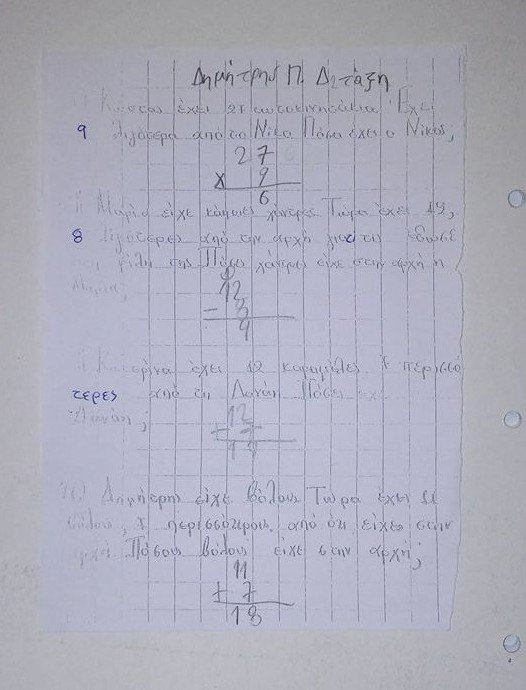 Δημήτρης Π. Δ2 τάξη
Κώστας έχει 27 αυτοκινητάκια Έχει
9 λιγότερα από το Νίκο Πόσα έχει ο Νίκος;
27
× 9
6
Η Μαρία είχε κάποιες χάντρες Τώρα έχει 12,
8 λιγότερες από την αρχή γιατί έδωσε
φίλη της Πόσες χάντρες είχε στην αρχή η
Μαρία;
12
= 8
9
Η Κατερίνα έχει 12 καραμέλες 7 περισσό
τερες από τη Δανάη Πόσες έχει
Δανάη;
12
+ 7
19
Δημήτρης είχε βόλους Τώρα έχει 11
βόλους, 7 περισσότερους από ότι είχε στην
αρχή Πόσους βόλους είχε στην αρχή;
11
+ 7
18